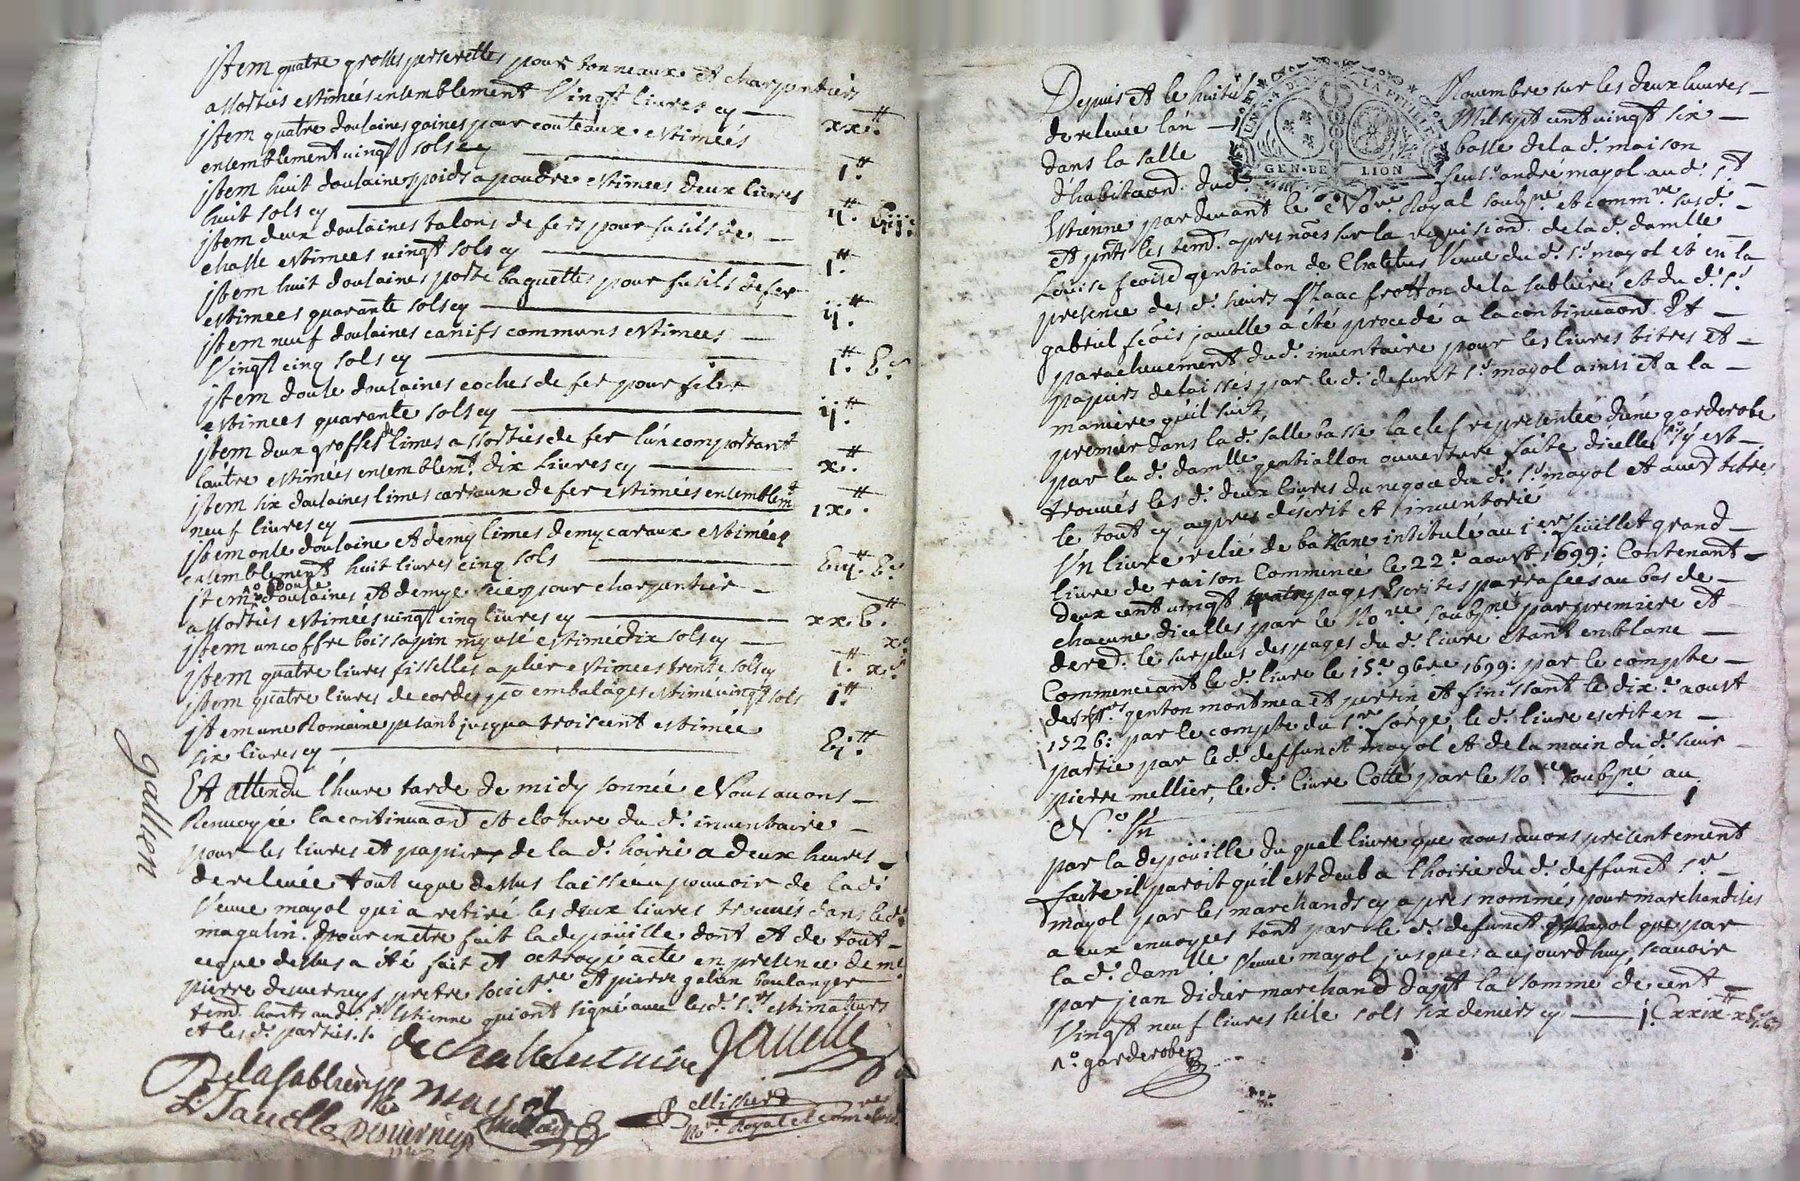 jtem quatre grosses perserettes pour tonneaux et charpentiers
assorties estimées ensemblement Vingt livres cy xx.tt
jtem quatre doulaines gaines pour couteaux estimées
ensemblement vingt sols cy 1.tt
jtem huit doulaines poids a poudre estimees deux livres
huit sols cy ij.tt
jtem deux doulaines talons de fer pour fusils de
chasse estimees vingt sols cy 1.tt
jtem huit doulaines porte baguette pour fusils de fer
estimees quarante sols cy ij.tt
jtem neuf doulaines canifs communs estimees
Vingt cinq sols cy 1.tt
jtem douse doulaines coches de fer pour filer
estimees quarante sols cy ij.tt
jtem deux grosses de limes assorties de fer lun comportant
lautre estimées ensemblemt. dix livres cy x.tt
jtem six doulaines limes carraux de fer estimées ensemblemt
neuf livres cy ix.tt
jtem onse doulaine et demy limes demy caraux estimées
ensemblement huit livres cinq sols
jtem doulaines et demye pour charpentier
assorties estimées vingt cinq livres cy
jtem un coffre bois sapin my usé estimé dix sols cy
jtem quatre livres fisselles a plier estimees trente sols cy
jtem quatre livres de cordes po embalages estime vingt sols 1.tt
jtem une Romaine pesant jusqua trois cent estimée
six livres cy
Et attendu lheure tarde de midy sonnée Nous avons
Renvoyée la continuaon et cloture du d. inventaire
pour les livres et papiers de la d. hoirie a deux heures
de relevée tout ce que dessus laisse au pouvoir de lad.
Veuve mayol qui a retiré les deux livres trouvés dans led.
magasin. pour en etre fait la depouille dont et de tout
ceque dessus a été fait et octroyé acte en presence de me
pierre desverneys pretre et pierre galien boulanger
temd. hants aud. st. Estienne qui ont signé avec lesd. srs. estimateurs
et lesd. parties.
gallien
Delasabliere
Javelle
Desverneys
Mellier
Nore. Royal
Depuis et le huitie Novembre sur les deux heures
de relevée lan Mil sept cent vingt six
dans la salle basse de la d. maison
dhabitaond. dud. feu sr. andré mayol au d. st.
Estienne pardevant le Nore. Royal soubsné. et commre. susd.
GEN. DE LION
et pnts. les temd. apres nomes sur la requisiond. de la d. damlle
Louise gentialon de Chatelus Veuve du d. sr. mayol et en la
presence des d. sieurs Isaac frotton de la sabliere et du d. sr.
gabriel javelle a été procedé a la continuaond. Et
parachevement dud. inventaire pour les livres titres et
papiers delaissés par le d. defunt sr. mayol ainsi et a la
maniere quil suit
premier dans la d. salle basse la clef representée dune garderobe
par la d. damlle gentiallon ouverture faite dicelle sy est
trouvés les d. deux livres du negoce du d. sr. mayol et titres
le tout cy apres descrit et inventorie
Un livre relié de bazane intitulé au 1er feuillet grand
livre de raison Commencé le 22e aoust 1699: Contenant
deux cent vingt quatre pages Escrites parrafées au bas de
chacune dicelles par le Nore. soubsné par premiere et
dered. le surplus des pages du d. livre etant en blanc
Commenceant le d. livre le 15e 9bre 1699: par le compte
des srs. genton montmea et perrin et finissant le dixe aoust
1526: par le compte du sr. le d. livre escrit en
partie par le d. deffunct mayol et de la main du d. sieur
pierre mellier, le d. livre Cotté par le Nore soubsné au
No. Un 1
par la depouille du quel livre que nous avons presentement
faite il paroit quil est deub a lhoirie du d. deffunct sr.
mayol par les marchands cy apres nommés pour marchandises
a eux envoyees tant par le d. defunct mayol que par
la d. damlle Veuve mayol jusques a cejourdhuy, scavoir
par jean didier marchand la somme de cent
Vingt neuf livres seise sols six deniers cy
1o garderobe